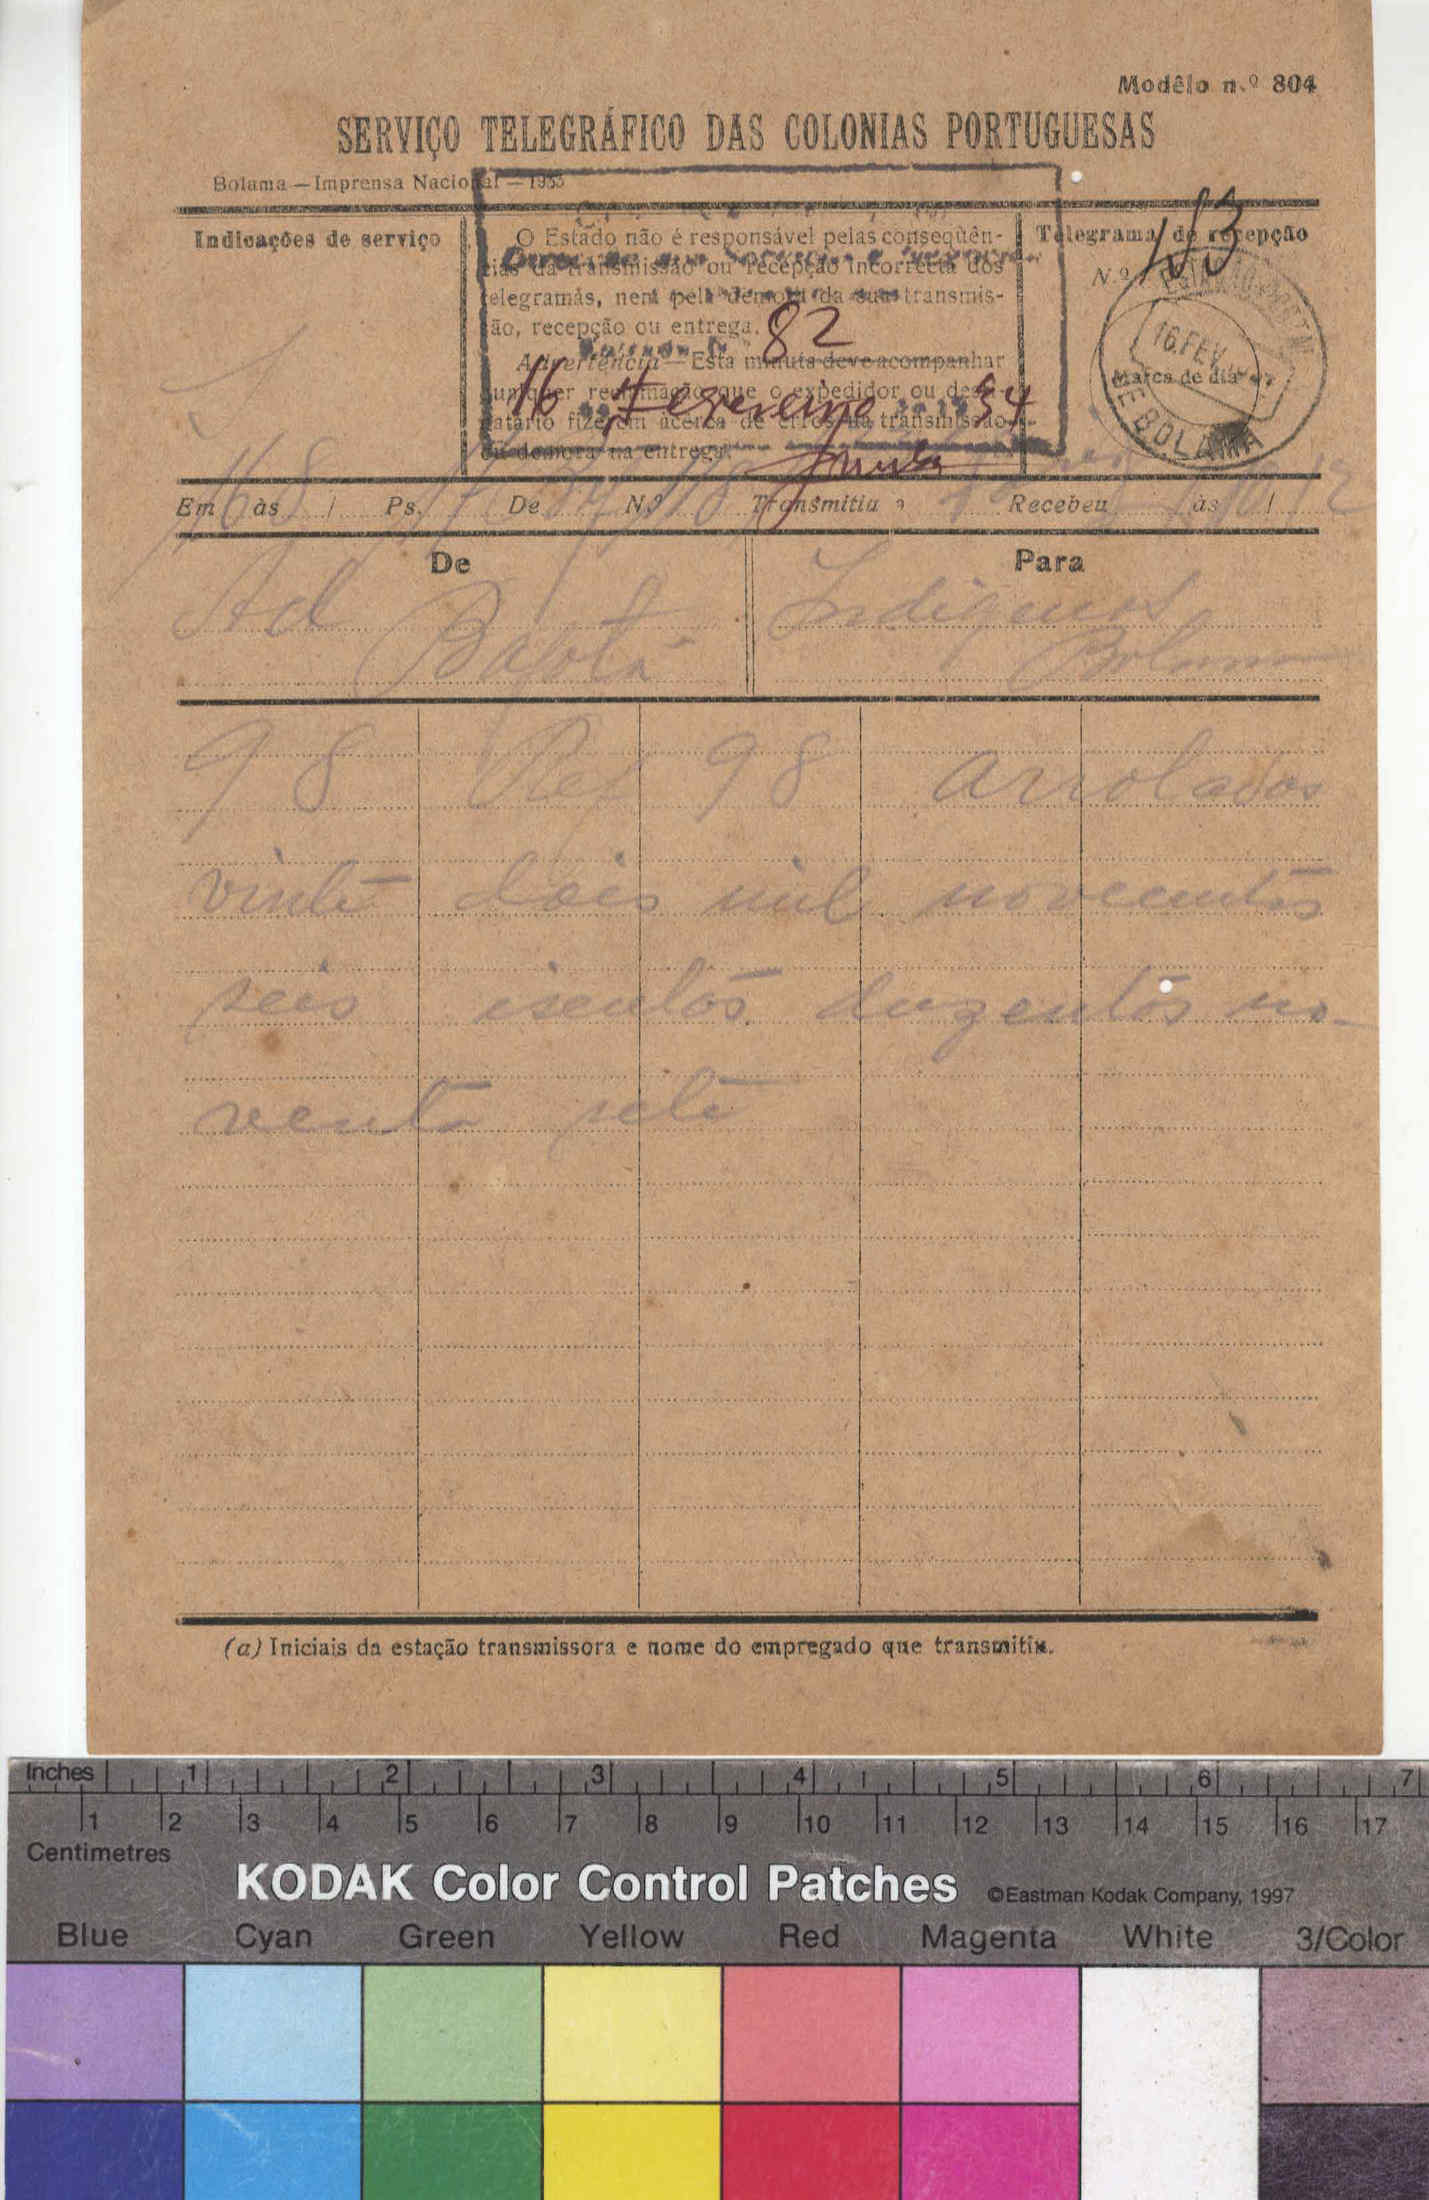 Modêlo n.º 804
SERVIÇO TELEGRÁFICO DAS COLONIAS PORTUGUESAS
Bolama — Imprensa Nacional — 1933
Indicações de serviço
O Estado não é responsável pelas conseqüên-
cias da transmissão ou recepção incorrecta dos
telegramas, nem pela demora da sua transmis-
são, recepção ou entrega.
82
Advertência — Esta minuta deve acompanhar
qualquer reclamação que o expedidor ou desti-
natário fizerem acêrca de erros na transmissão
ou demora na entrega.
16 Fevereiro 34
Telegrama de recepção
N.º 183
16.FEV
Marca de dia
DE BOLAMA
Em às / Ps. De N.º Transmitiu Recebeu às /
De
Para
Ad
Indigenas
Bafatá
Bolama
98 Ref 98 arrolados
vinte dois mil novecentos
seis isentos duzentos no-
venta sete
(a) Iniciais da estação transmissora e nome do empregado que transmitiu.
Inches 1 2 3 4 5 6 7
1 2 3 4 5 6 7 8 9 10 11 12 13 14 15 16 17
Centimetres
KODAK Color Control Patches ©Eastman Kodak Company, 1997
Blue Cyan Green Yellow Red Magenta White 3/Color